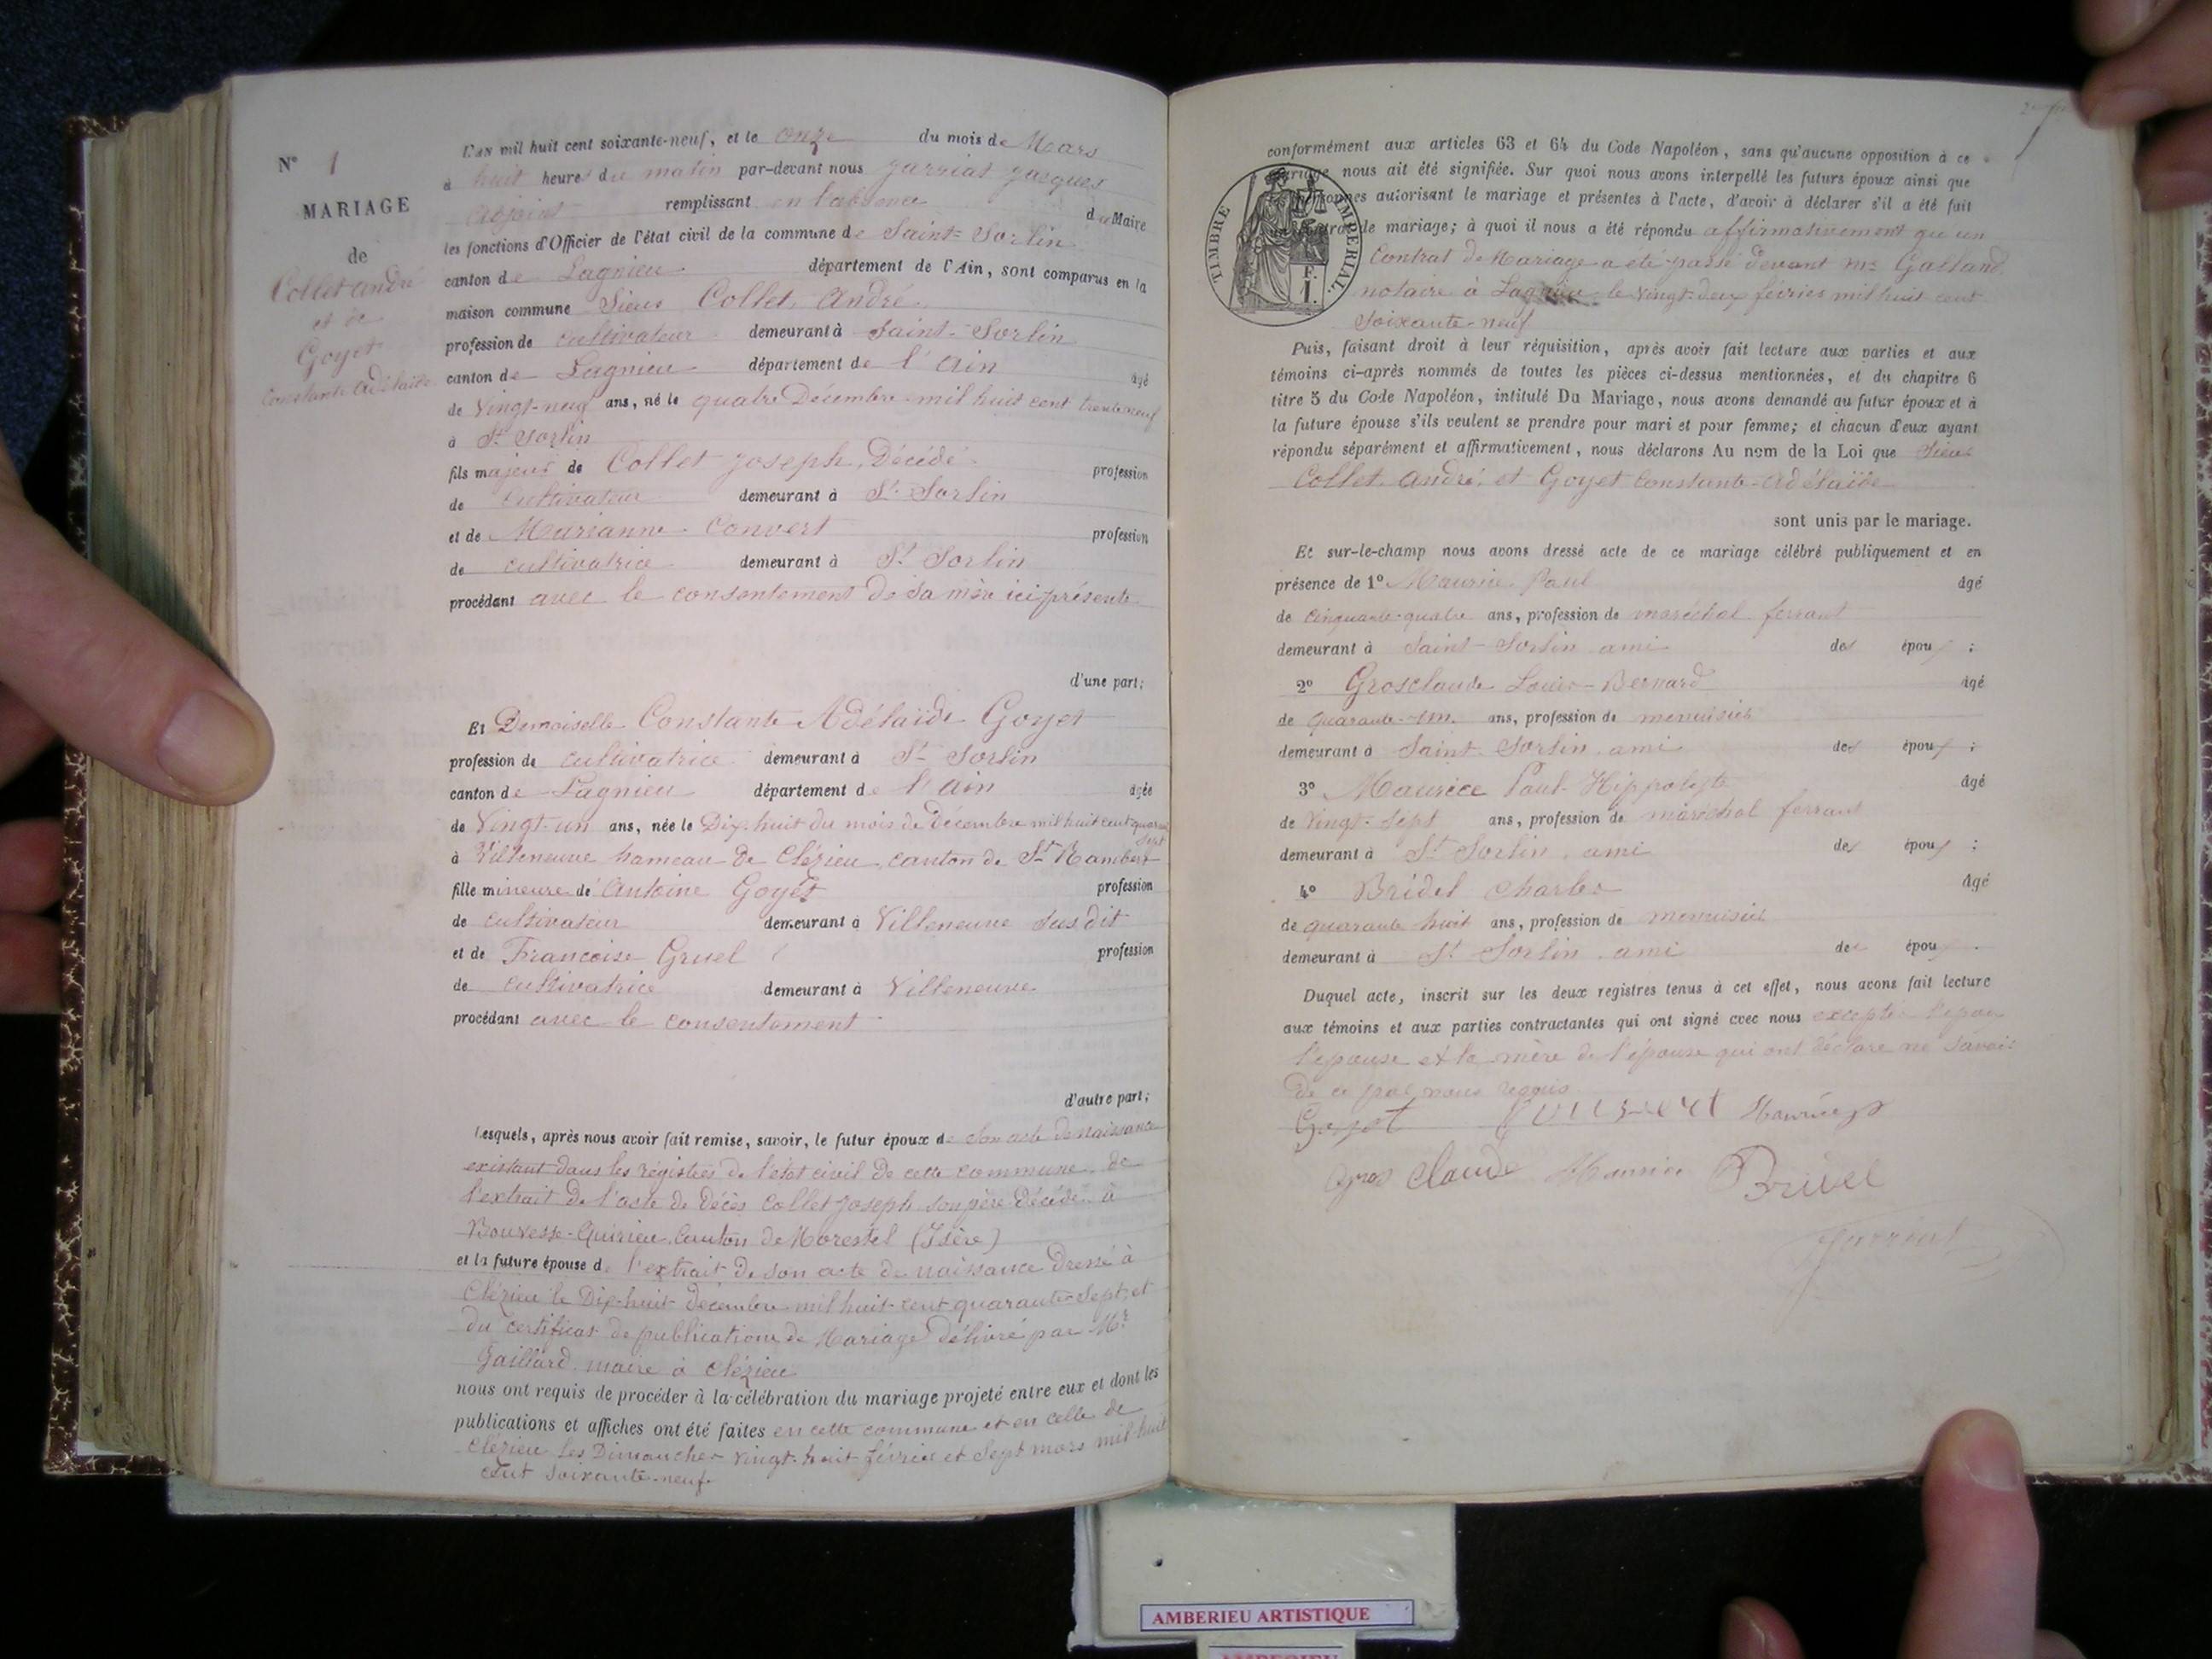 N° 1
MARIAGE
de
Collet André
et de
Goyet
Constante Adélaïde
L'an mil huit cent soixante-neuf, et le onze du mois de Mars
à huit heures du matin par-devant nous Jarriat Jacques
adjoint remplissant en l'absence du Maire
les fonctions d'Officier de l'état civil de la commune de Saint-Sorlin
canton de Lagnieu département de l'Ain, sont comparus en la
maison commune Sieur Collet André
profession de cultivateur demeurant à Saint-Sorlin
canton de Lagnieu département de l'Ain âgé
de Vingt-neuf ans, né le quatre Décembre mil huit cent trente neuf
à St Sorlin
fils majeur de Collet Joseph, Décédé profession
de cultivateur demeurant à St Sorlin
et de Marianne Convert profession
de cultivatrice demeurant à St Sorlin
procédant avec le consentement de sa mère ici présente
d'une part;
Et Demoiselle Constante Adélaïde Goyet
profession de cultivatrice demeurant à St Sorlin
canton de Lagnieu département de l'Ain âgée
de Vingt-un ans, née le Dix-huit du mois de décembre mil huit cent quarante
sept
à Villeneuve hameau de Clézieu, canton de St Rambert
fille mineure de Antoine Goyet profession
de cultivateur demeurant à Villeneuve susdit
et de Francoise Gruel profession
de cultivatrice demeurant à Villeneuve
procédant avec le consentement
d'autre part;
Lesquels, après nous avoir fait remise, savoir, le futur époux de son acte de naissance
existant dans les régistres de l'état civil de cette commune, de
l'extrait de l'acte de décès Collet Joseph son père décédé à
Bouvesse-Quirieu, Canton de Morestel (Isère)
et la future épouse de l'extrait de son acte de naissance dressé à
Clézieu le Dix-huit décembre mil huit cent quarante-sept, et
du certificat de publication de Mariage délivré par Mr
Gaillard maire à Clézieu
nous ont requis de procéder à la célébration du mariage projeté entre eux et dont les
publications et affiches ont été faites en cette commune et en celle de
Clézieu les Dimanches vingt-huit février et sept mars mil huit
cent soixante-neuf
conformément aux articles 63 et 64 du Code Napoléon, sans qu'aucune opposition à ce
mariage nous ait été signifiée. Sur quoi nous avons interpellé les futurs époux ainsi que
personnes autorisant le mariage et présentes à l'acte, d'avoir à déclarer s'il a été fait
de mariage; à quoi il nous a été répondu affirmativement qu'un
Contrat de Mariage a été passé devant Me Galland
notaire à Lagnieu le vingt-deux février mil huit cent
soixante-neuf
TIMBRE IMPERIAL.
F.
I.
Puis, faisant droit à leur réquisition, après avoir fait lecture aux parties et aux
témoins ci-après nommés de toutes les pièces ci-dessus mentionnées, et du chapitre 6
titre 5 du Code Napoléon, intitulé Du Mariage, nous avons demandé au futur époux et à
la future épouse s'ils veulent se prendre pour mari et pour femme; et chacun d'eux ayant
répondu séparément et affirmativement, nous déclarons Au nom de la Loi que Sieur
Collet André, et Goyet Constante-Adélaïde
sont unis par le mariage.
Et sur-le-champ nous avons dressé acte de ce mariage célébré publiquement et en
présence de 1° Maurice Paul âgé
de cinquante-quatre ans, profession de maréchal ferrant
demeurant à Saint-Sorlin ami des époux ;
2° Grosclaude Louis-Bernard âgé
de quarante-un ans, profession de menuisier
demeurant à Saint-Sorlin ami des époux ;
3° Maurice Paul-Hippolyte âgé
de vingt-sept ans, profession de maréchal ferrant
demeurant à St Sorlin ami des époux ;
4° Bridel Charles âgé
de quarante huit ans, profession de menuisier
demeurant à St Sorlin ami des époux .
Duquel acte, inscrit sur les deux registres tenus à cet effet, nous avons fait lecture
aux témoins et aux parties contractantes qui ont signé avec nous excepté
l'épouse et la mère de l'épouse qui ont déclaré ne savoir
de ce par nous requis
Goyet Convert Maurice
Gros Claude Maurice Bridel
Jarriat
AMBERIEU ARTISTIQUE